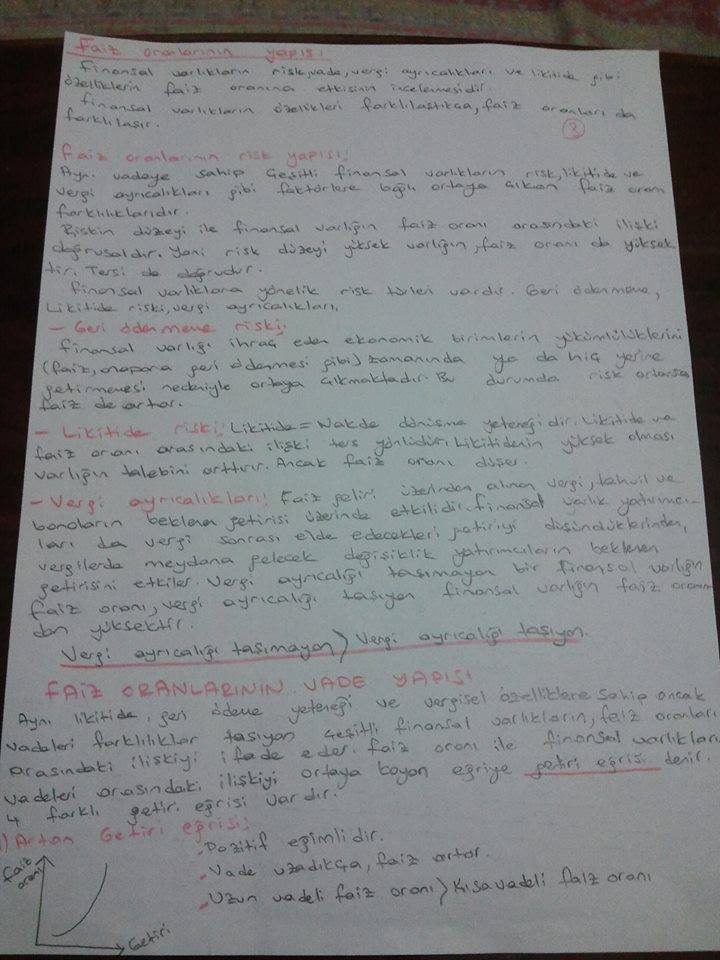 Faiz oranlarının yapısı:
Finansal varlıkların risk, vade, vergi ayrıcalıkları ve likitide gibi
özelliklerin faiz oranına etkisinin incelemesidir.
Finansal varlıkların özellikleri farklılaştıkça, faiz oranları da
farklılaşır.
2
Faiz oranlarının risk yapısı:
Aynı vadeye sahip çeşitli finansal varlıkların risk, likitide ve
vergi ayrıcalıkları gibi faktörlere bağlı ortaya çıkan faiz oranı
farklılıklarıdır.
Riskin düzeyi ile finansal varlığın faiz oranı arasındaki ilişki
doğrusaldır. Yani risk düzeyi yüksek varlığın, faiz oranı da yüksek
tir. Tersi de doğrudur.
Finansal varlıklara yönelik risk türleri vardır. Geri ödenmeme,
Likitide riski, vergi ayrıcalıkları,
- Geri ödenmeme riski:
Finansal varlığı ihraç eden ekonomik birimlerin yükümlülüklerini
(faiz, anapara geri ödenmesi gibi) zamanında ya da hiç yerine
getirmemesi nedeniyle ortaya çıkmaktadır. Bu durumda risk artarsa
faiz de artar.
- Likitide riski: Likitide = Nakde dönüşme yeteneğidir. Likitide ve
faiz oranı arasındaki ilişki ters yönlüdür. Likitidenin yüksek olması
varlığın talebini arttırır. Ancak faiz oranı düşer.
- Vergi ayrıcalıkları: Faiz geliri üzerinden alınan vergi, tahvil ve
bonoların beklenen getirisi üzerinde etkilidir. Finansal varlık yatırımcı-
ları da vergi sonrası elde edecekleri getiriyi düşündüklerinden,
vergilerde meydana gelecek değişiklik yatırımcıların beklenen
getirisini etkiler. Vergi ayrıcalığı taşımayan bir finansal varlığın
faiz oranı, vergi ayrıcalığı taşıyan finansal varlığın faiz oranın
dan yüksektir.
Vergi ayrıcalığı taşımayan > Vergi ayrıcalığı taşıyan.
FAİZ ORANLARININ VADE YAPISI
Aynı likitide, geri ödeme yeteneği ve vergisel özelliklere sahip ancak
vadeleri farklılıklar taşıyan çeşitli finansal varlıkların, faiz oranları
arasındaki ilişkiyi ifade eder. Faiz oranı ile finansal varlıkları
vadeleri arasındaki ilişkiyi ortaya koyan eğriye getiri eğrisi denir.
4 farklı getiri eğrisi vardır.
1) Artan Getiri eğrisi:
. Pozitif eğimlidir.
. Vade uzadıkça, faiz artar.
. Uzun vadeli faiz oranı > Kısa vadeli faiz oranı
Faiz
oranı
Getiri